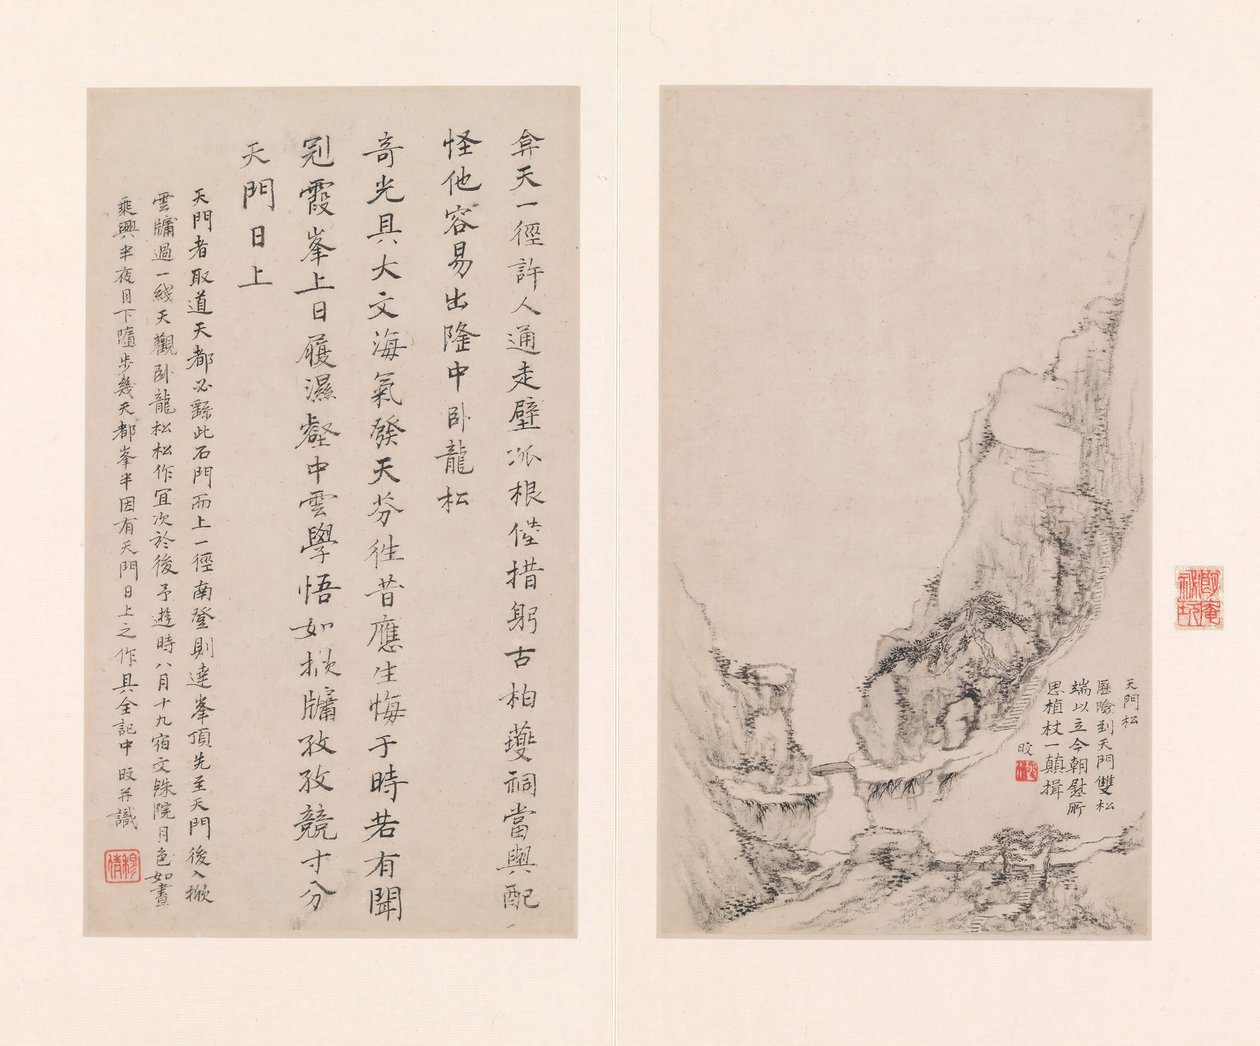 天門松
歷險到天門雙松
端以立今朝慰所
思植杖一顛揖
旼
弇天一徑許人通走壁孤根倦措躬古柏夔祠當與配
怪他容易出隆中臥龍松
奇光具大文海氣發天芬往昔應生悔于時若有聞
霞峯上日履濕壑中雲學悟如掀牖孜孜競寸分
天門日上
天門者取道天都必繇此石門而上一徑南登則達峯頂先至天門後入掀
雲牖過一綫天觀臥龍松松作宜次於後予遊時八月十九宿文殊院月色如晝
乘興半夜月下隨步幾天都峯半因有天門日上之作具全記中旼并識
穆倩